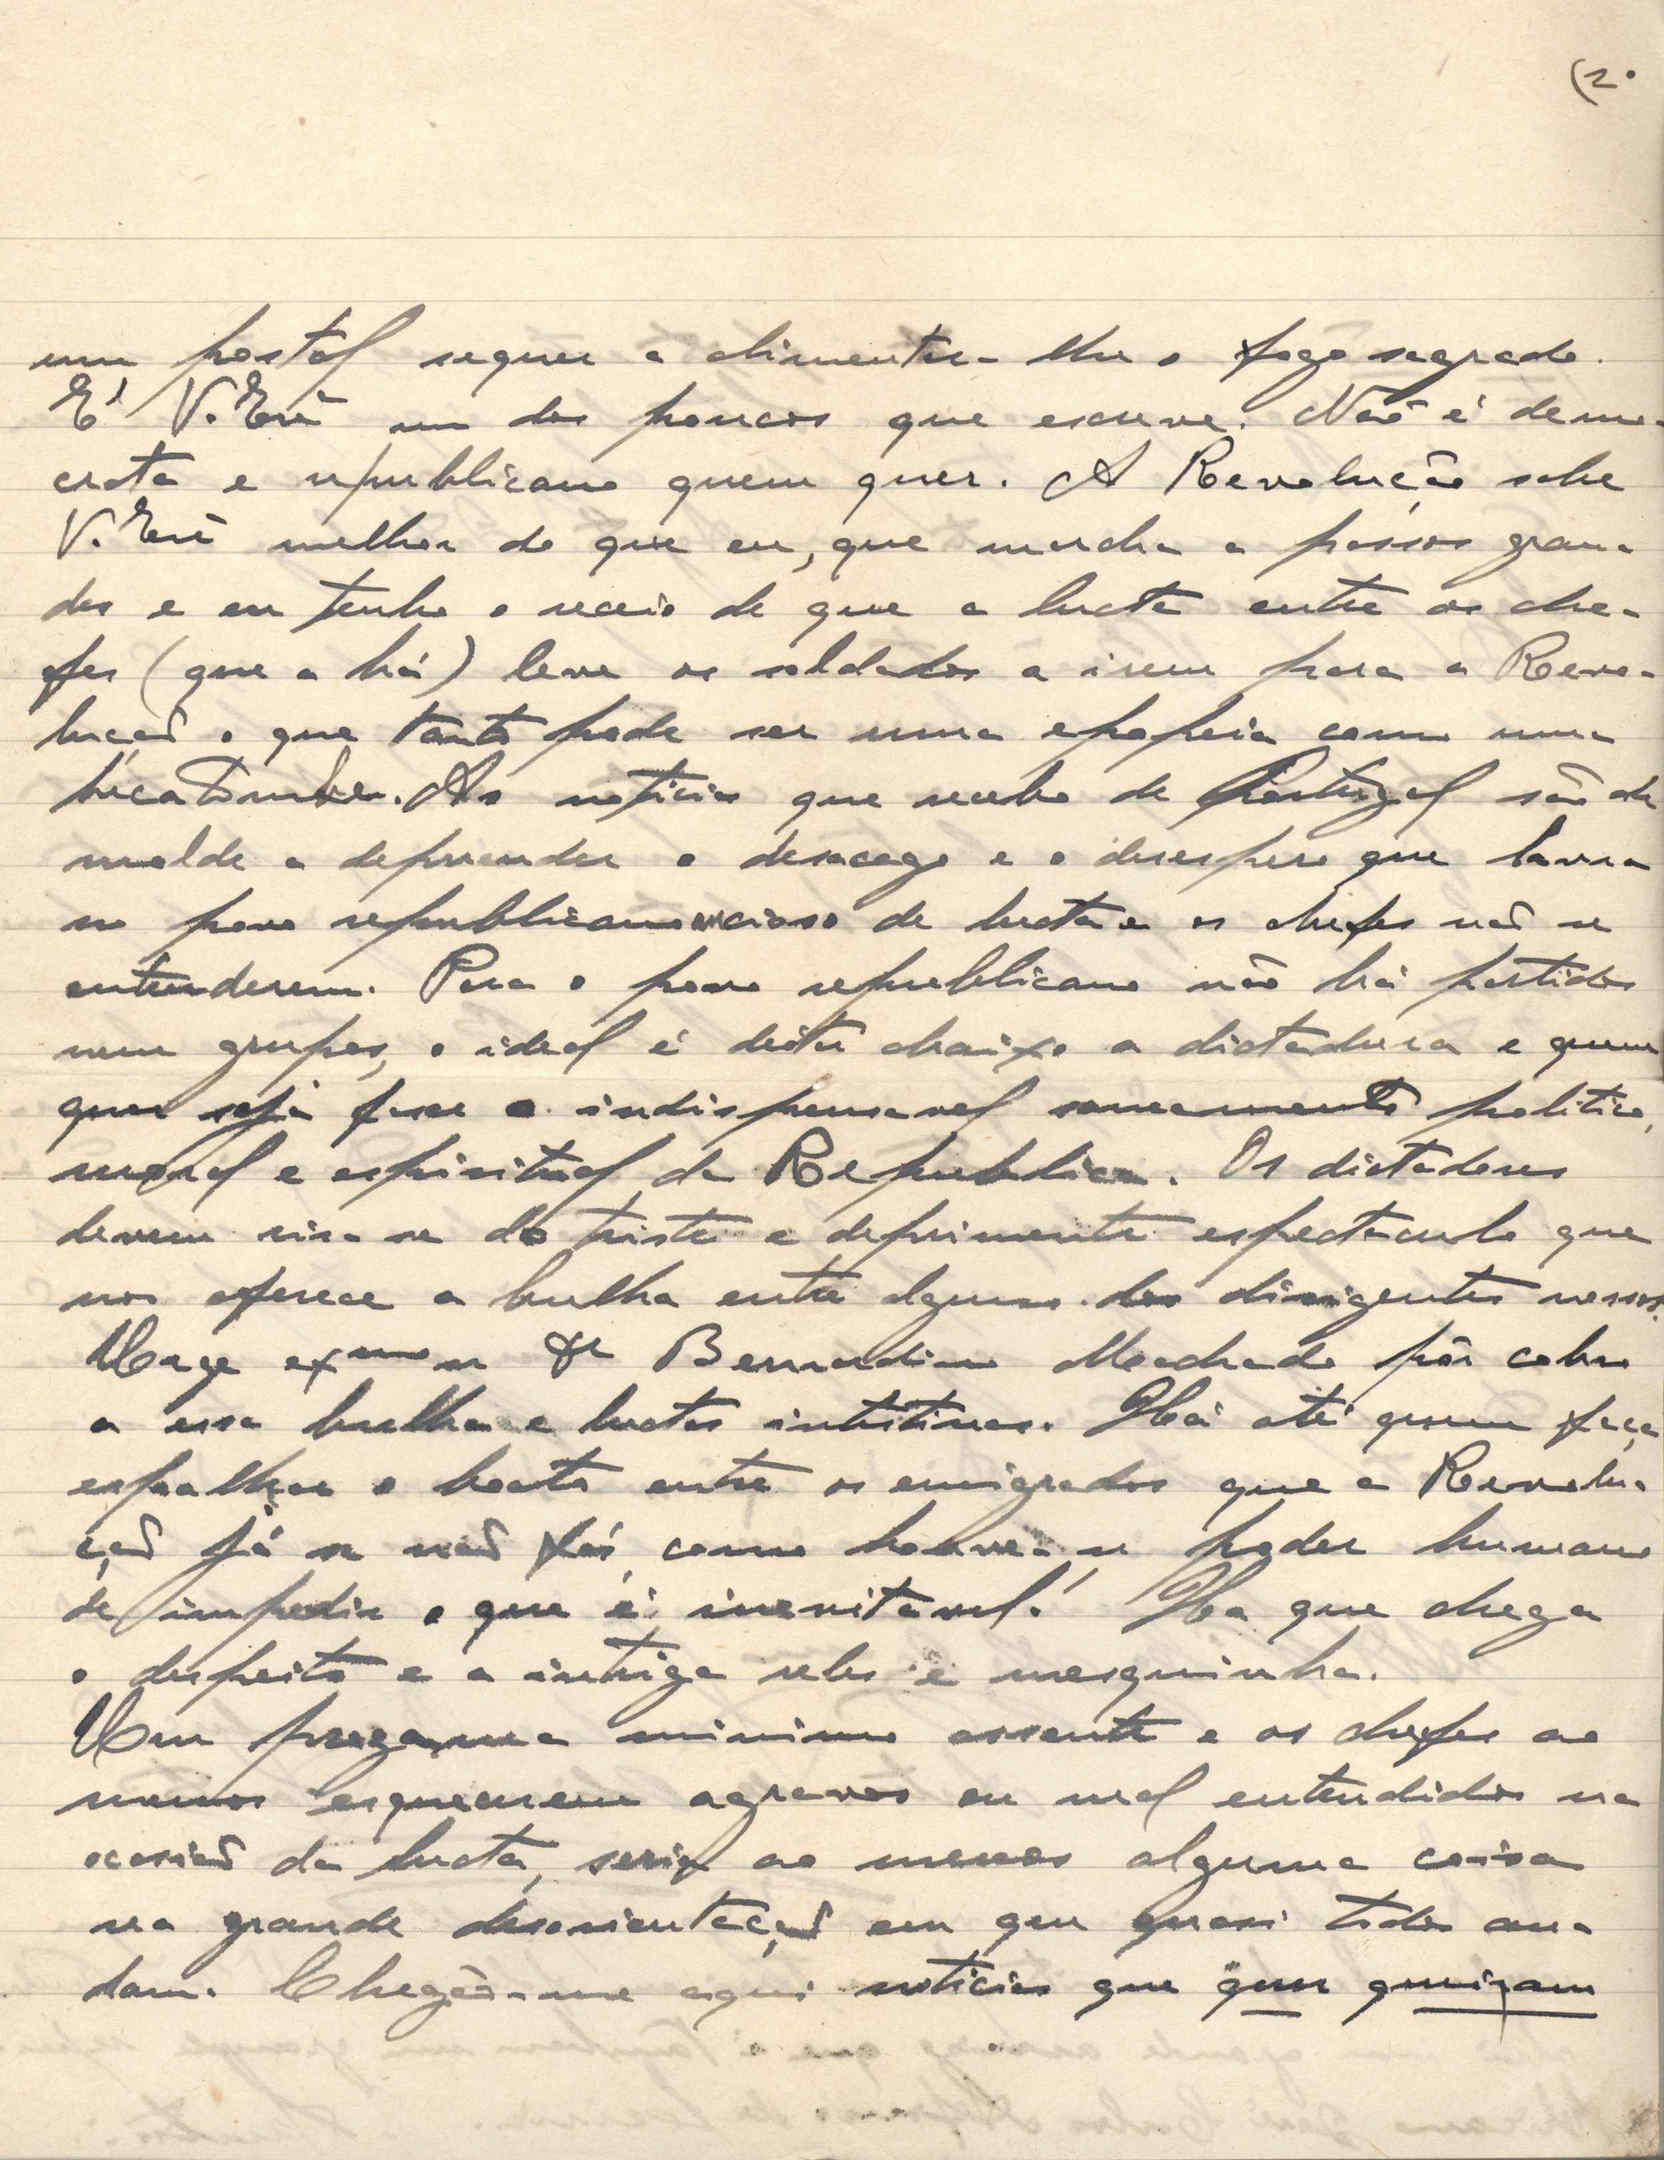 (2º
um postal sequer a alimentar-lhe o fogo sagrado.
E' V. Exª um dos poucos que escreve. Não é demo-
crata e republicano quem quer. A Revolução sabe
V. Exª melhor do que eu, que marcha a passos gran-
des e eu tenho o receio de que a lucta entre os che-
fes (que a há) leve os soldados a irem para a Revo-
lução o que tanto pode ser uma epopeia como uma
hecatombe. As noticias que recebo de Portugal são de
molde a depreender o desacego e o desespero que lavra
no povo republicano ancioso de lucta e os chefes não se
entenderem. Para o povo republicano não há partidos
nem grupos, o ideal é deitar abaixo a dictadura e quem
quer seja fazer o indispensavel saneamento politico,
moral e espiritual da Republica. Os dictadores
devem rir-se do triste e deprimente espectaculo que
nos oferece a bulha entre alguns dos dirigentes nossos.
Urge exmo sr Dr Bernardino Machado pôr cobro
a essa bulha e luctas intestinas. Há até quem faça
espalhar o boato entre os emigrados que a Revolu-
ção já se não faz, como houvera poder humano
de impedir o que é inevitavel! Ha que chega
o despeito e a intriga reles e mesquinha.
Um programa minimo assente e os chefes ao
menos esquecerem agravos ou mal entendidos na
ocasião da lucta, seria ao menos alguma coisa
na grande desorientação em que quasi todos an-
dam. Chegão-me aqui noticias que quer queiram